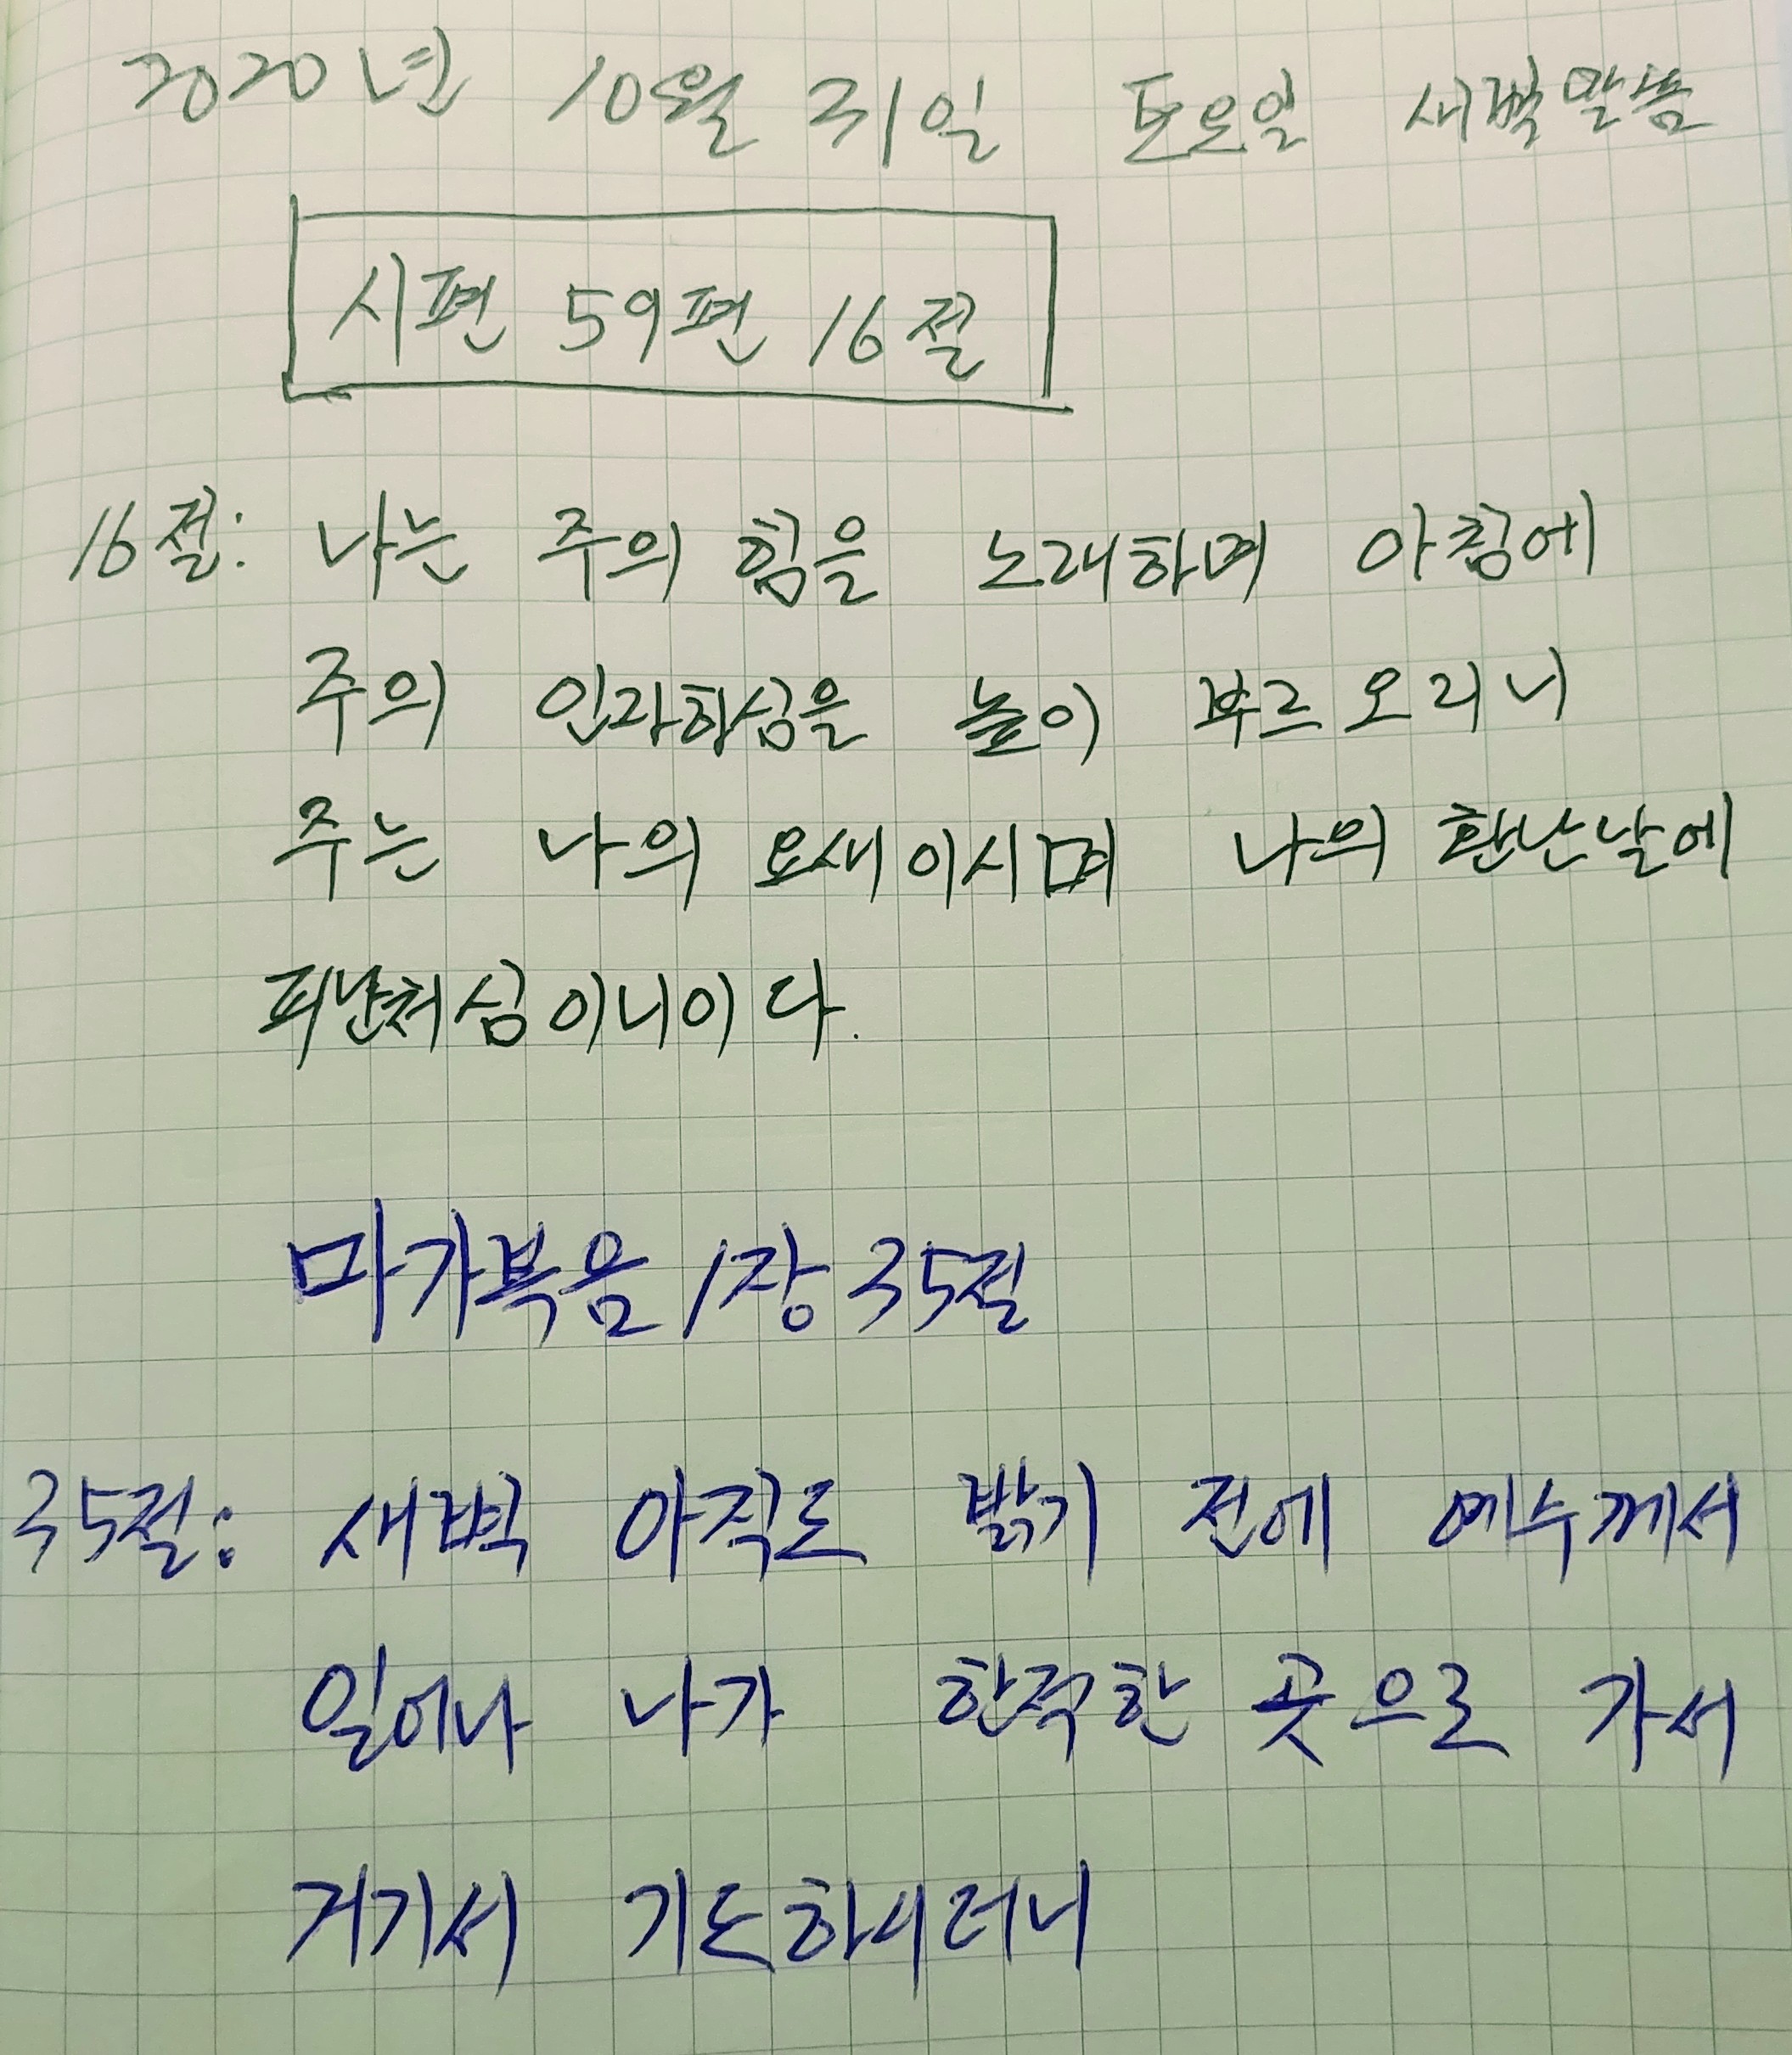 2020년 10월 31일 토요일 새벽말씀
시편 59편 16절
16절: 나는 주의 힘을 노래하며 아침에
주의 인자하심을 높이 부르오리니
주는 나의 요새이시며 나의 환난날에
피난처심이니이다.
마가복음 1장 35절
35절: 새벽 아직도 밝기 전에 예수께서
일어나 나가 한적한 곳으로 가서
거기서 기도하시더니